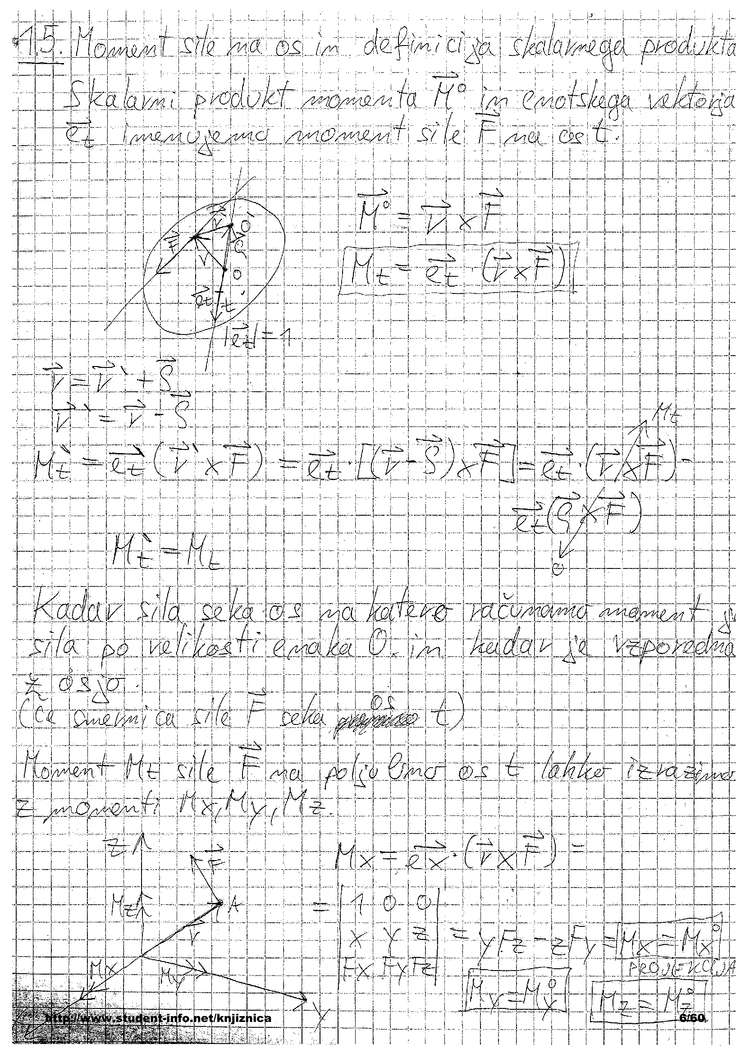 1.5. Moment sile na os in definicija skalarnega produkta
Skalarni produkt momenta M⃗° in enotskega vektorja
e⃗t imenujemo moment sile F⃗ na os t.
M⃗° = r⃗ x F⃗
Mt = e⃗t · (r⃗ x F⃗)
F⃗ r⃗' O' ρ⃗ r⃗ O
e⃗t t
|e⃗t| = 1
r⃗ = r⃗' + ρ⃗
r⃗' = r⃗ - ρ⃗
Mt
Mt' = e⃗t (r⃗' x F⃗) = e⃗t · [(r⃗ - ρ⃗) x F⃗] = e⃗t · (r⃗ x F⃗) -
e⃗t (ρ⃗ x F⃗)
0
Mt' = Mt
Kadar sila seka os na katero računamo moment je
sila po velikosti enaka 0. in kadar je vzporedna
z osjo.
(Če smernica sile F⃗ seka os t)
Moment Mt sile F⃗ na poljubno os t lahko izrazimo
z momenti Mx, My, Mz.
z F⃗
Mx = e⃗x · (r⃗ x F⃗) =
Mz A r⃗
= |1 0 0|
|x y z| = yFz - zFy = Mx = Mx°
|Fx Fy Fz|
PROJEKCIJA
Mx My
My = My°
Mz = Mz°
y
http://www.student-info.net/knjiznica
6/60